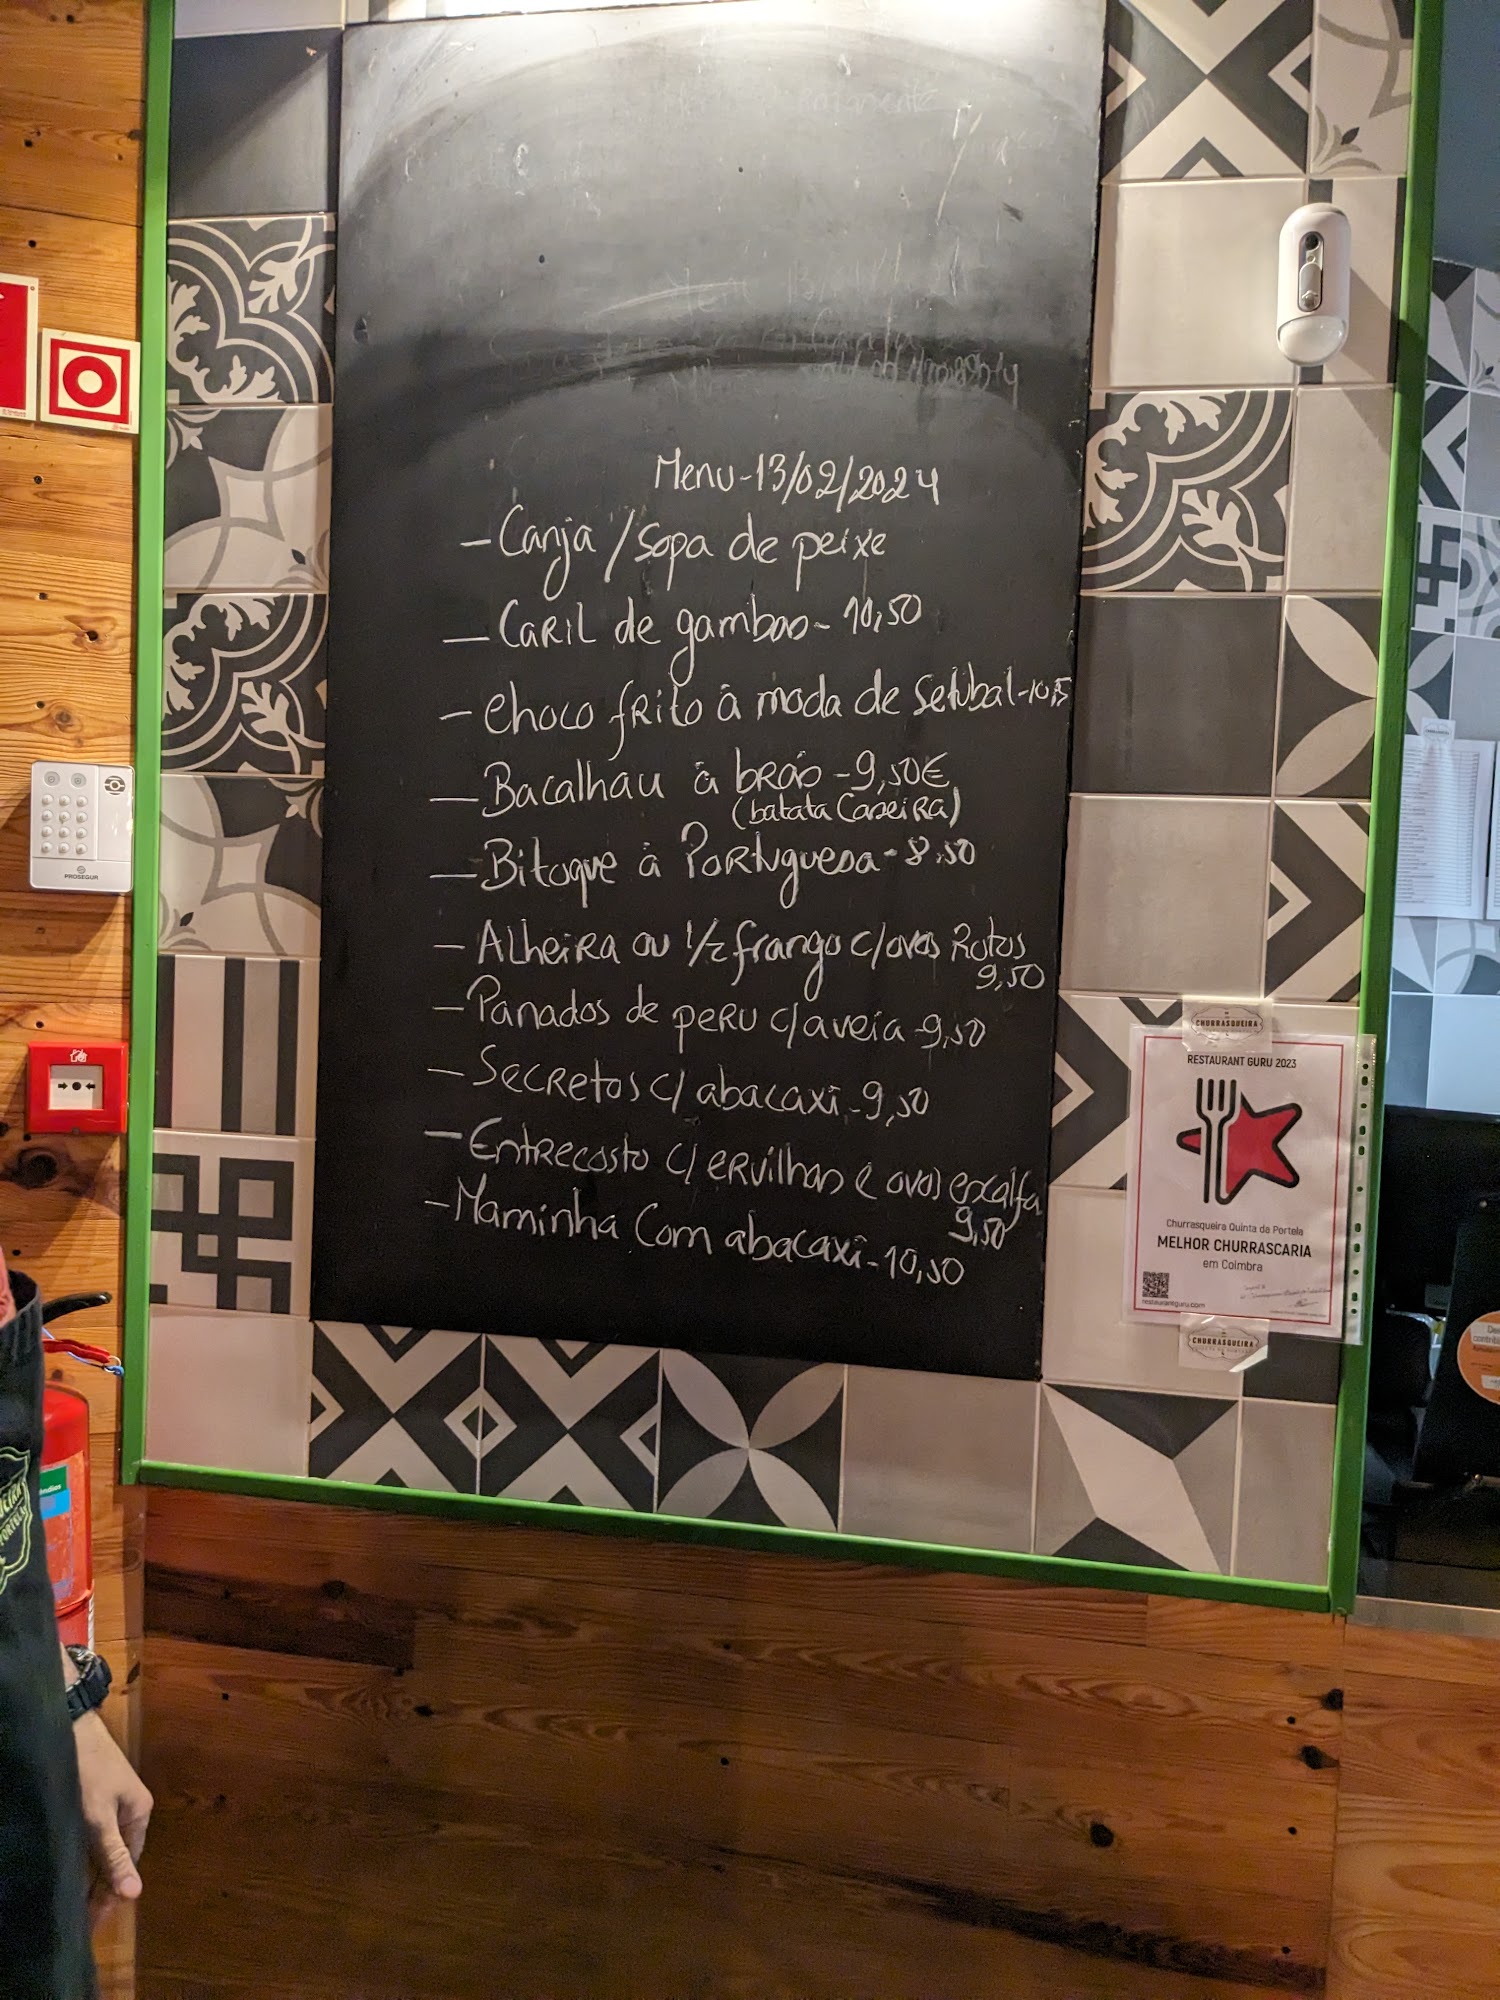 Menu-13/02/2024
- Canja / sopa de peixe
- Caril de gambas - 10,50
- choco frito à moda de Setubal - 10,5
- Bacalhau à brás - 9,50€
(batata Caseira)
- Bitoque à Portuguesa - 8,50
- Alheira ou 1/2 frango c/ovos Rotos
9,50
- Panados de peru c/aveia - 9,50
- Secretos c/ abacaxi - 9,50
- Entrecosto c/ ervilhas e ovos escalfa
9,50
- Maminha Com abacaxi - 10,50
PROSEGUR
CHURRASQUEIRA
RESTAURANT GURU 2023
Churrasqueira Quinta da Portela
MELHOR CHURRASCARIA
em Coimbra
restaurantguru.com
CHURRASQUEIRA